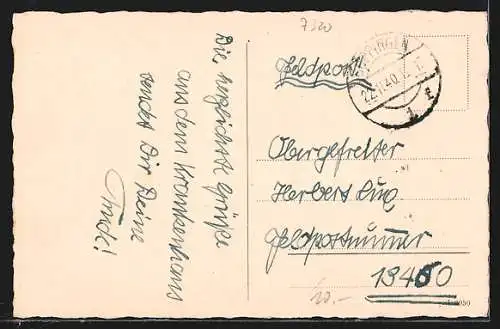 Die herzlichste Grüße
aus dem Krankenhaus
sendet Dir Deine
Trude!
7320
Feldpost!
22.1.40.
Obergefreiter
Herbert
Feldpostnummer
13460
20.-